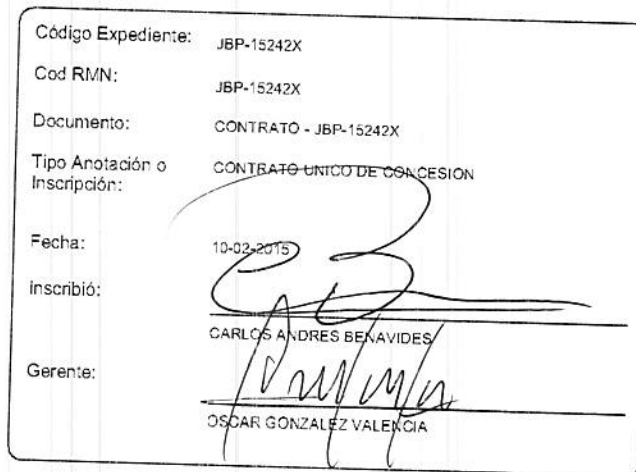 Código Expediente: JBP-15242X
Cod RMN: JBP-15242X
Documento: CONTRATO - JBP-15242X
Tipo Anotación o Inscripción: CONTRATO UNICO DE CONCESION
Fecha: 10-02-2015
inscribió:
CARLOS ANDRES BENAVIDES
Gerente:
OSCAR GONZALEZ VALENCIA